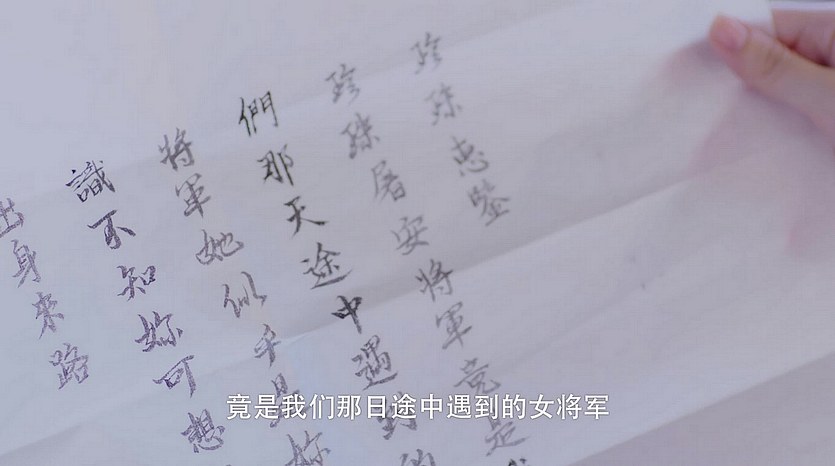 珍珠惠鑒
珍珠屠安將軍竟是
們那天途中遇到的
將軍她似乎是妳
識不知妳可想
出身來路
竟是我们那日途中遇到的女将军